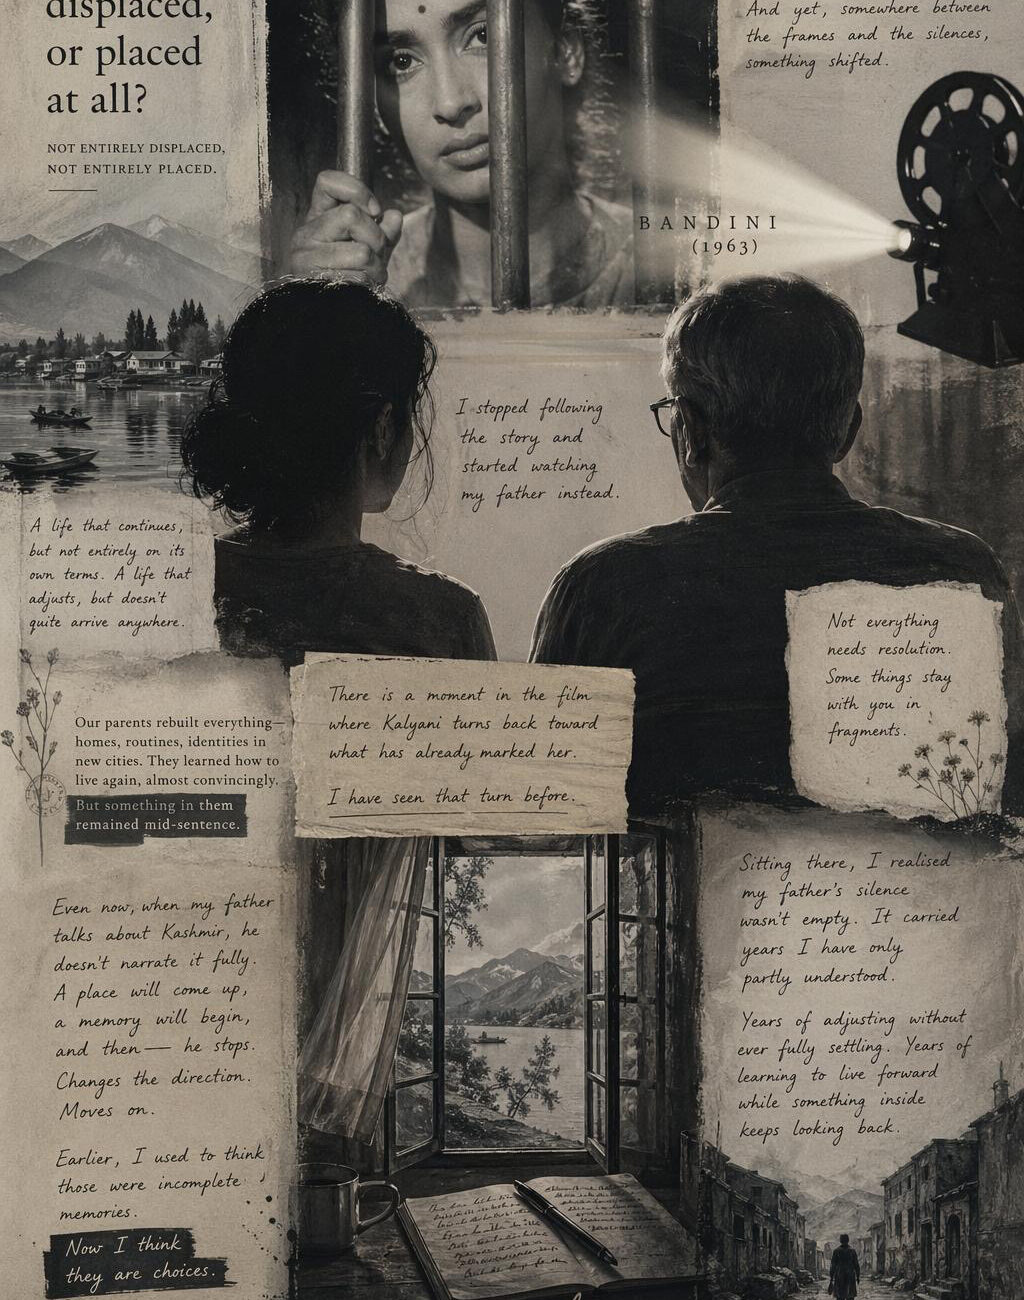 displaced,
or placed
at all?
NOT ENTIRELY DISPLACED,
NOT ENTIRELY PLACED.
And yet, somewhere between
the frames and the silences,
something shifted.
BANDINI
(1963)
I stopped following
the story and
started watching
my father instead.
A life that continues,
but not entirely on its
own terms. A life that
adjusts, but doesn't
quite arrive anywhere.
Not everything
needs resolution.
Some things stay
with you in
fragments.
There is a moment in the film
where Kalyani turns back toward
what has already marked her.
I have seen that turn before.
Our parents rebuilt everything—
homes, routines, identities in
new cities. They learned how to
live again, almost convincingly.
But something in them
remained mid-sentence.
Even now, when my father
talks about Kashmir, he
doesn't narrate it fully.
A place will come up,
a memory will begin,
and then — he stops.
Changes the direction.
Moves on.
Earlier, I used to think
those were incomplete
memories.
Now I think
they are choices.
Sitting there, I realised
my father's silence
wasn't empty. It carried
years I have only
partly understood.
Years of adjusting without
ever fully settling. Years of
learning to live forward
while something inside
keeps looking back.